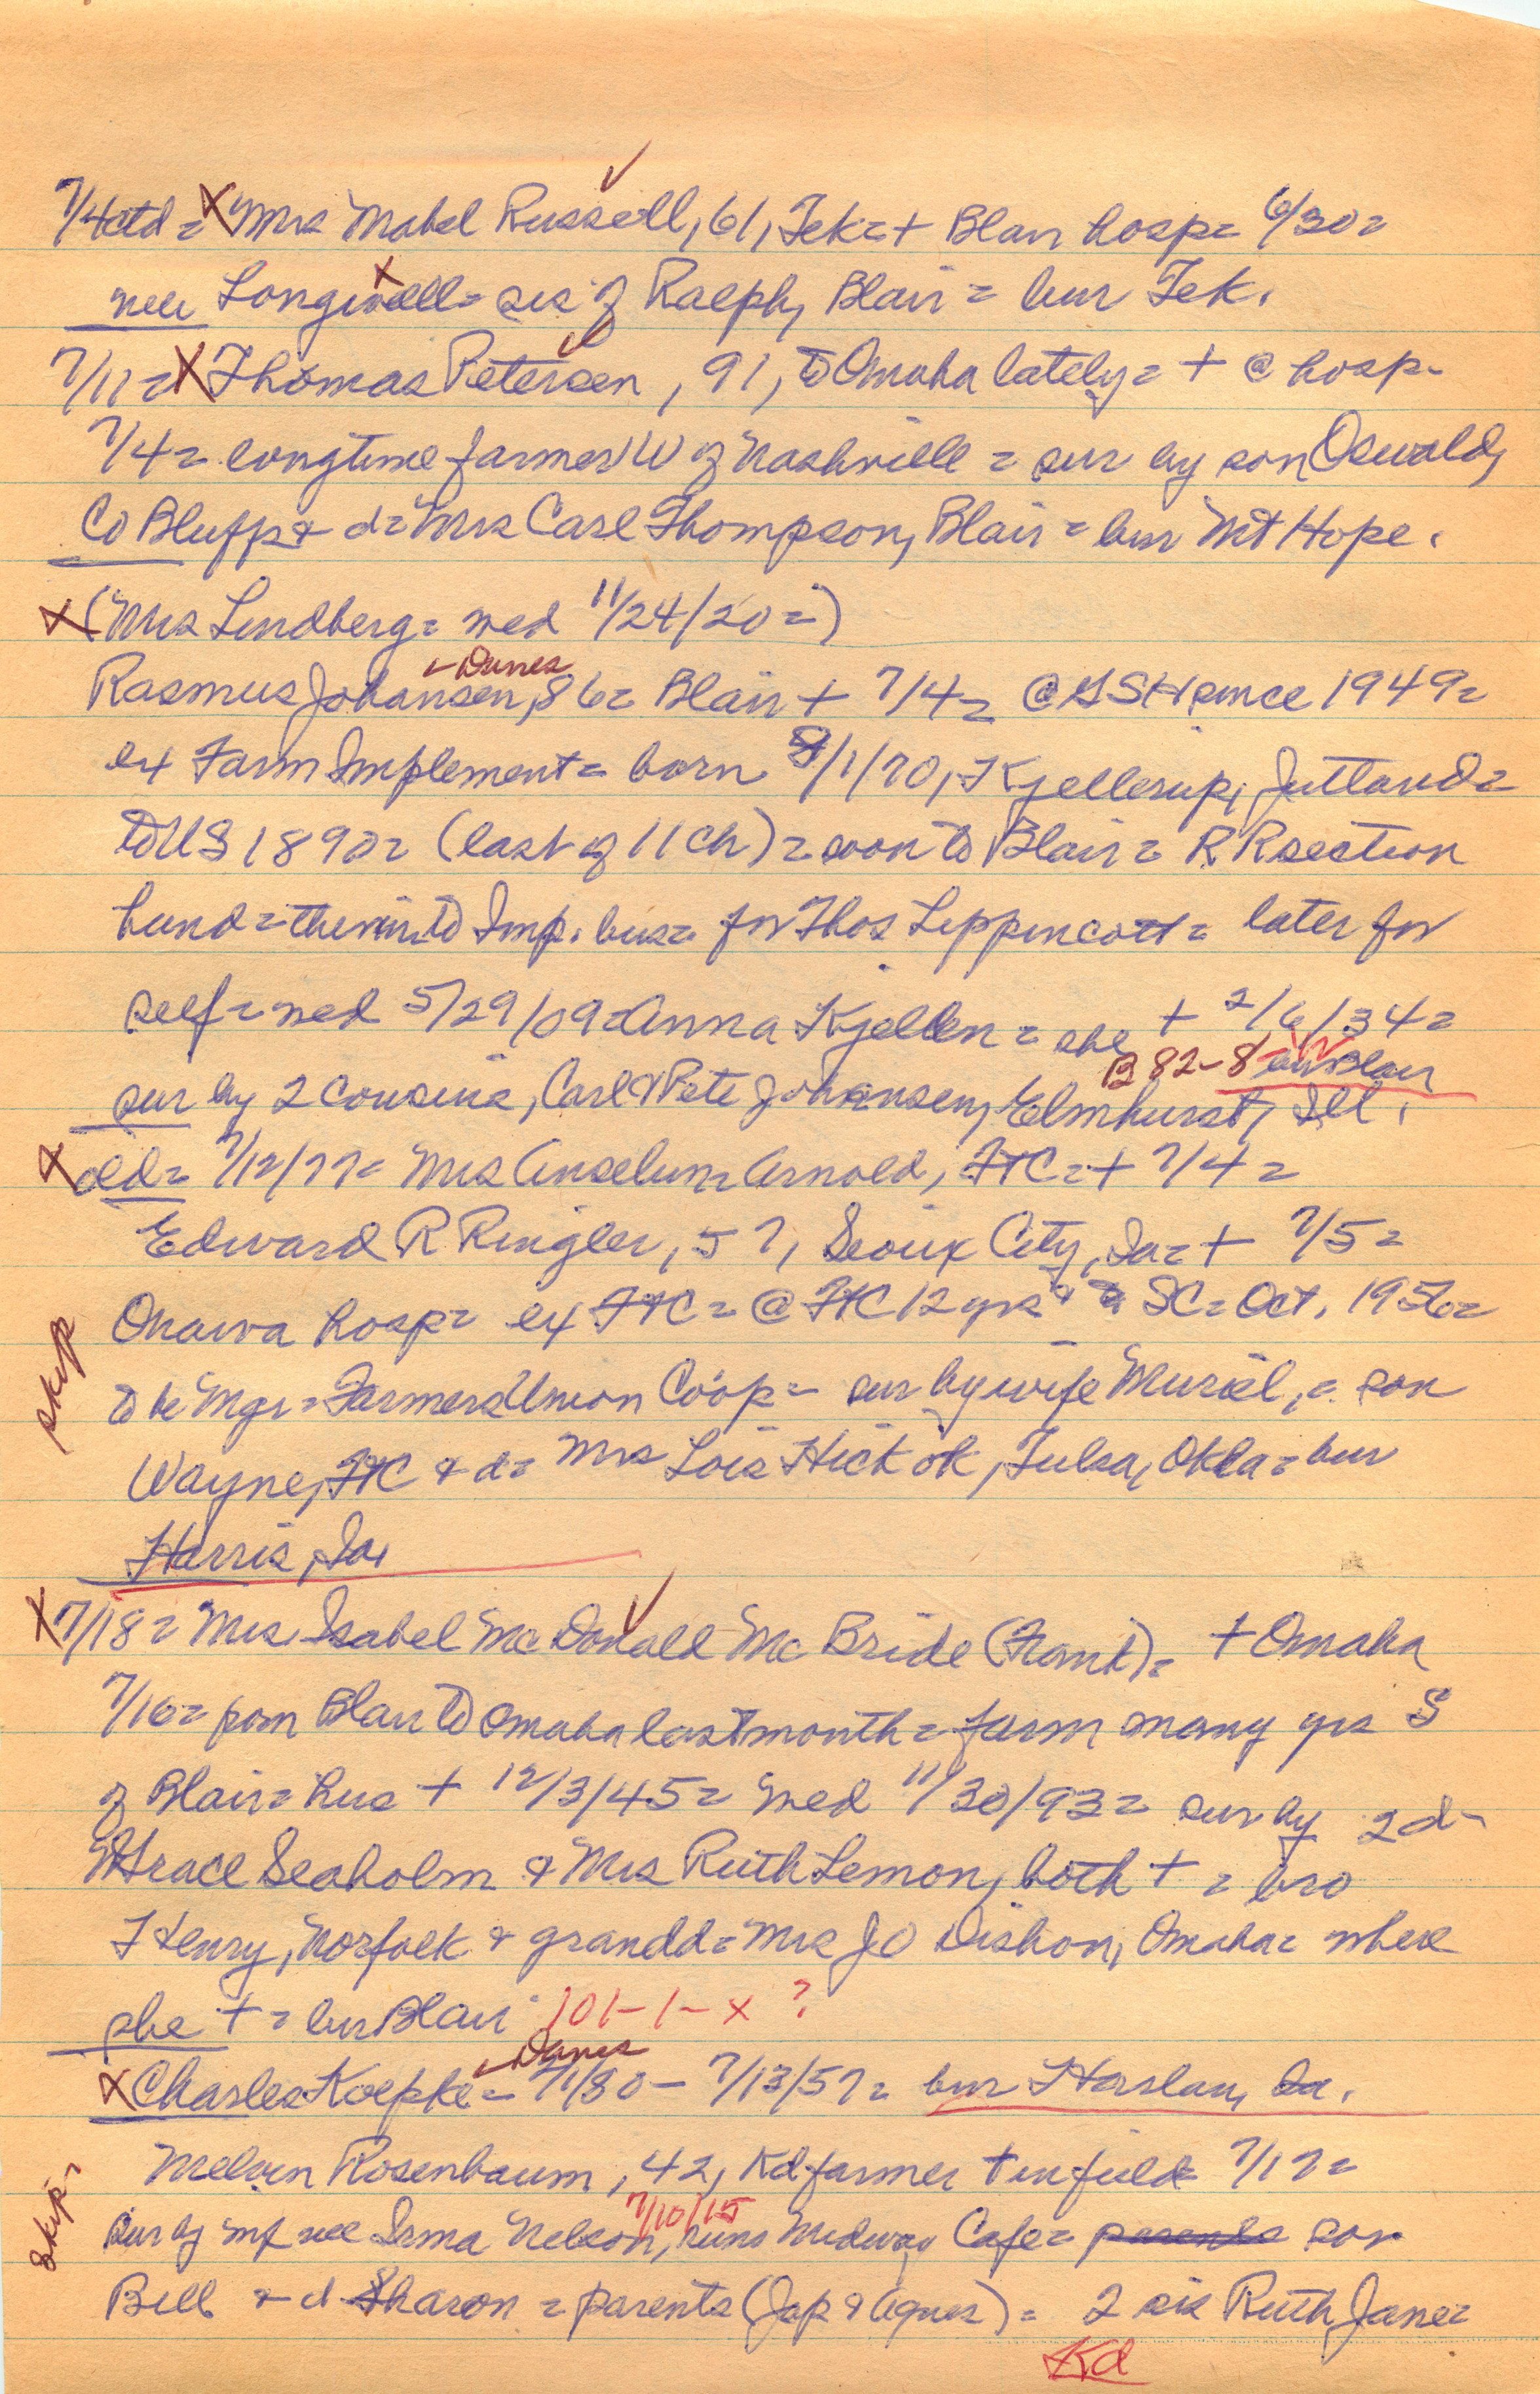 7/4ctd = X Mrs Mabel Russell, 61, Tek = + Blair hosp = 6/30 =
nee Longwell = sis of Ralph, Blair = bur Tek.
7/11 = X Thomas Petersen, 91, to Omaha lately = + @ hosp -
7/4 = longtime farmer W of Nashville = sur by son Oswald,
Co Bluffs & d = Mrs Carl Thompson, Blair = bur Mt Hope.
X (Mrs Lindberg = wed 11/24/20 =)
- Danes
Rasmus Johansen, 86 = Blair + 7/4 = @ GSH since 1949 =
ex Farm Implement = born 8/1/70, Kjellerup, Jutland =
to US 1890 = (last of 11 ch) = soon to Blair = RR section
hand = then into Imp. bus = for Thos Lippincott = later for
self = wed 5/29/09 = Anna Kjellen = she + 2/6/34 =
B 82-8 bur Blair
sur by 2 cousins, Carl & Pete Johansen, Elmhurst, Ill.
X dd = 7/12/77 = Mrs Anselum Arnold, FtC = + 7/4 =
Edward R Ringler, 57, Sioux City, Ia = + 7/5 =
skip
Onawa hosp = ex FtC = @ FtC 12 yrs & SC = Oct. 1956 =
to be Mgr = Farmers Union Coop = sur by wife Muriel, = son
Wayne, FtC & d = Mrs Lois Hickok, Tulsa, Okla = bur
Harris, Ia.
X 7/18 = Mrs Isabel McDonald McBride (Frank) = + Omaha
7/16 = from Blair to Omaha last month = farm many yrs S
of Blair = hus + 12/3/45 = wed 11/30/93 = sur by 2 d -
Grace Seaholm & Mrs Ruth Lemon, both + = bro
Henry, Norfolk & grandd = Mrs JO Dishon, Omaha = where
she + = bur Blair 101-1-x ?
- Danes
X Charles Koepke = 7/1/80 - 7/13/57 = bur Harlan, Ia.
Melvin Rosenbaum, 42, Kd farmer + in field = 7/17 =
7/10/15
skip
sur by wf nee Irma Nelson, runs Midway Cafe = parents son
Bill & d Sharon = parents (Jap & Agnes) = 2 sis Ruth Jane =
Kd